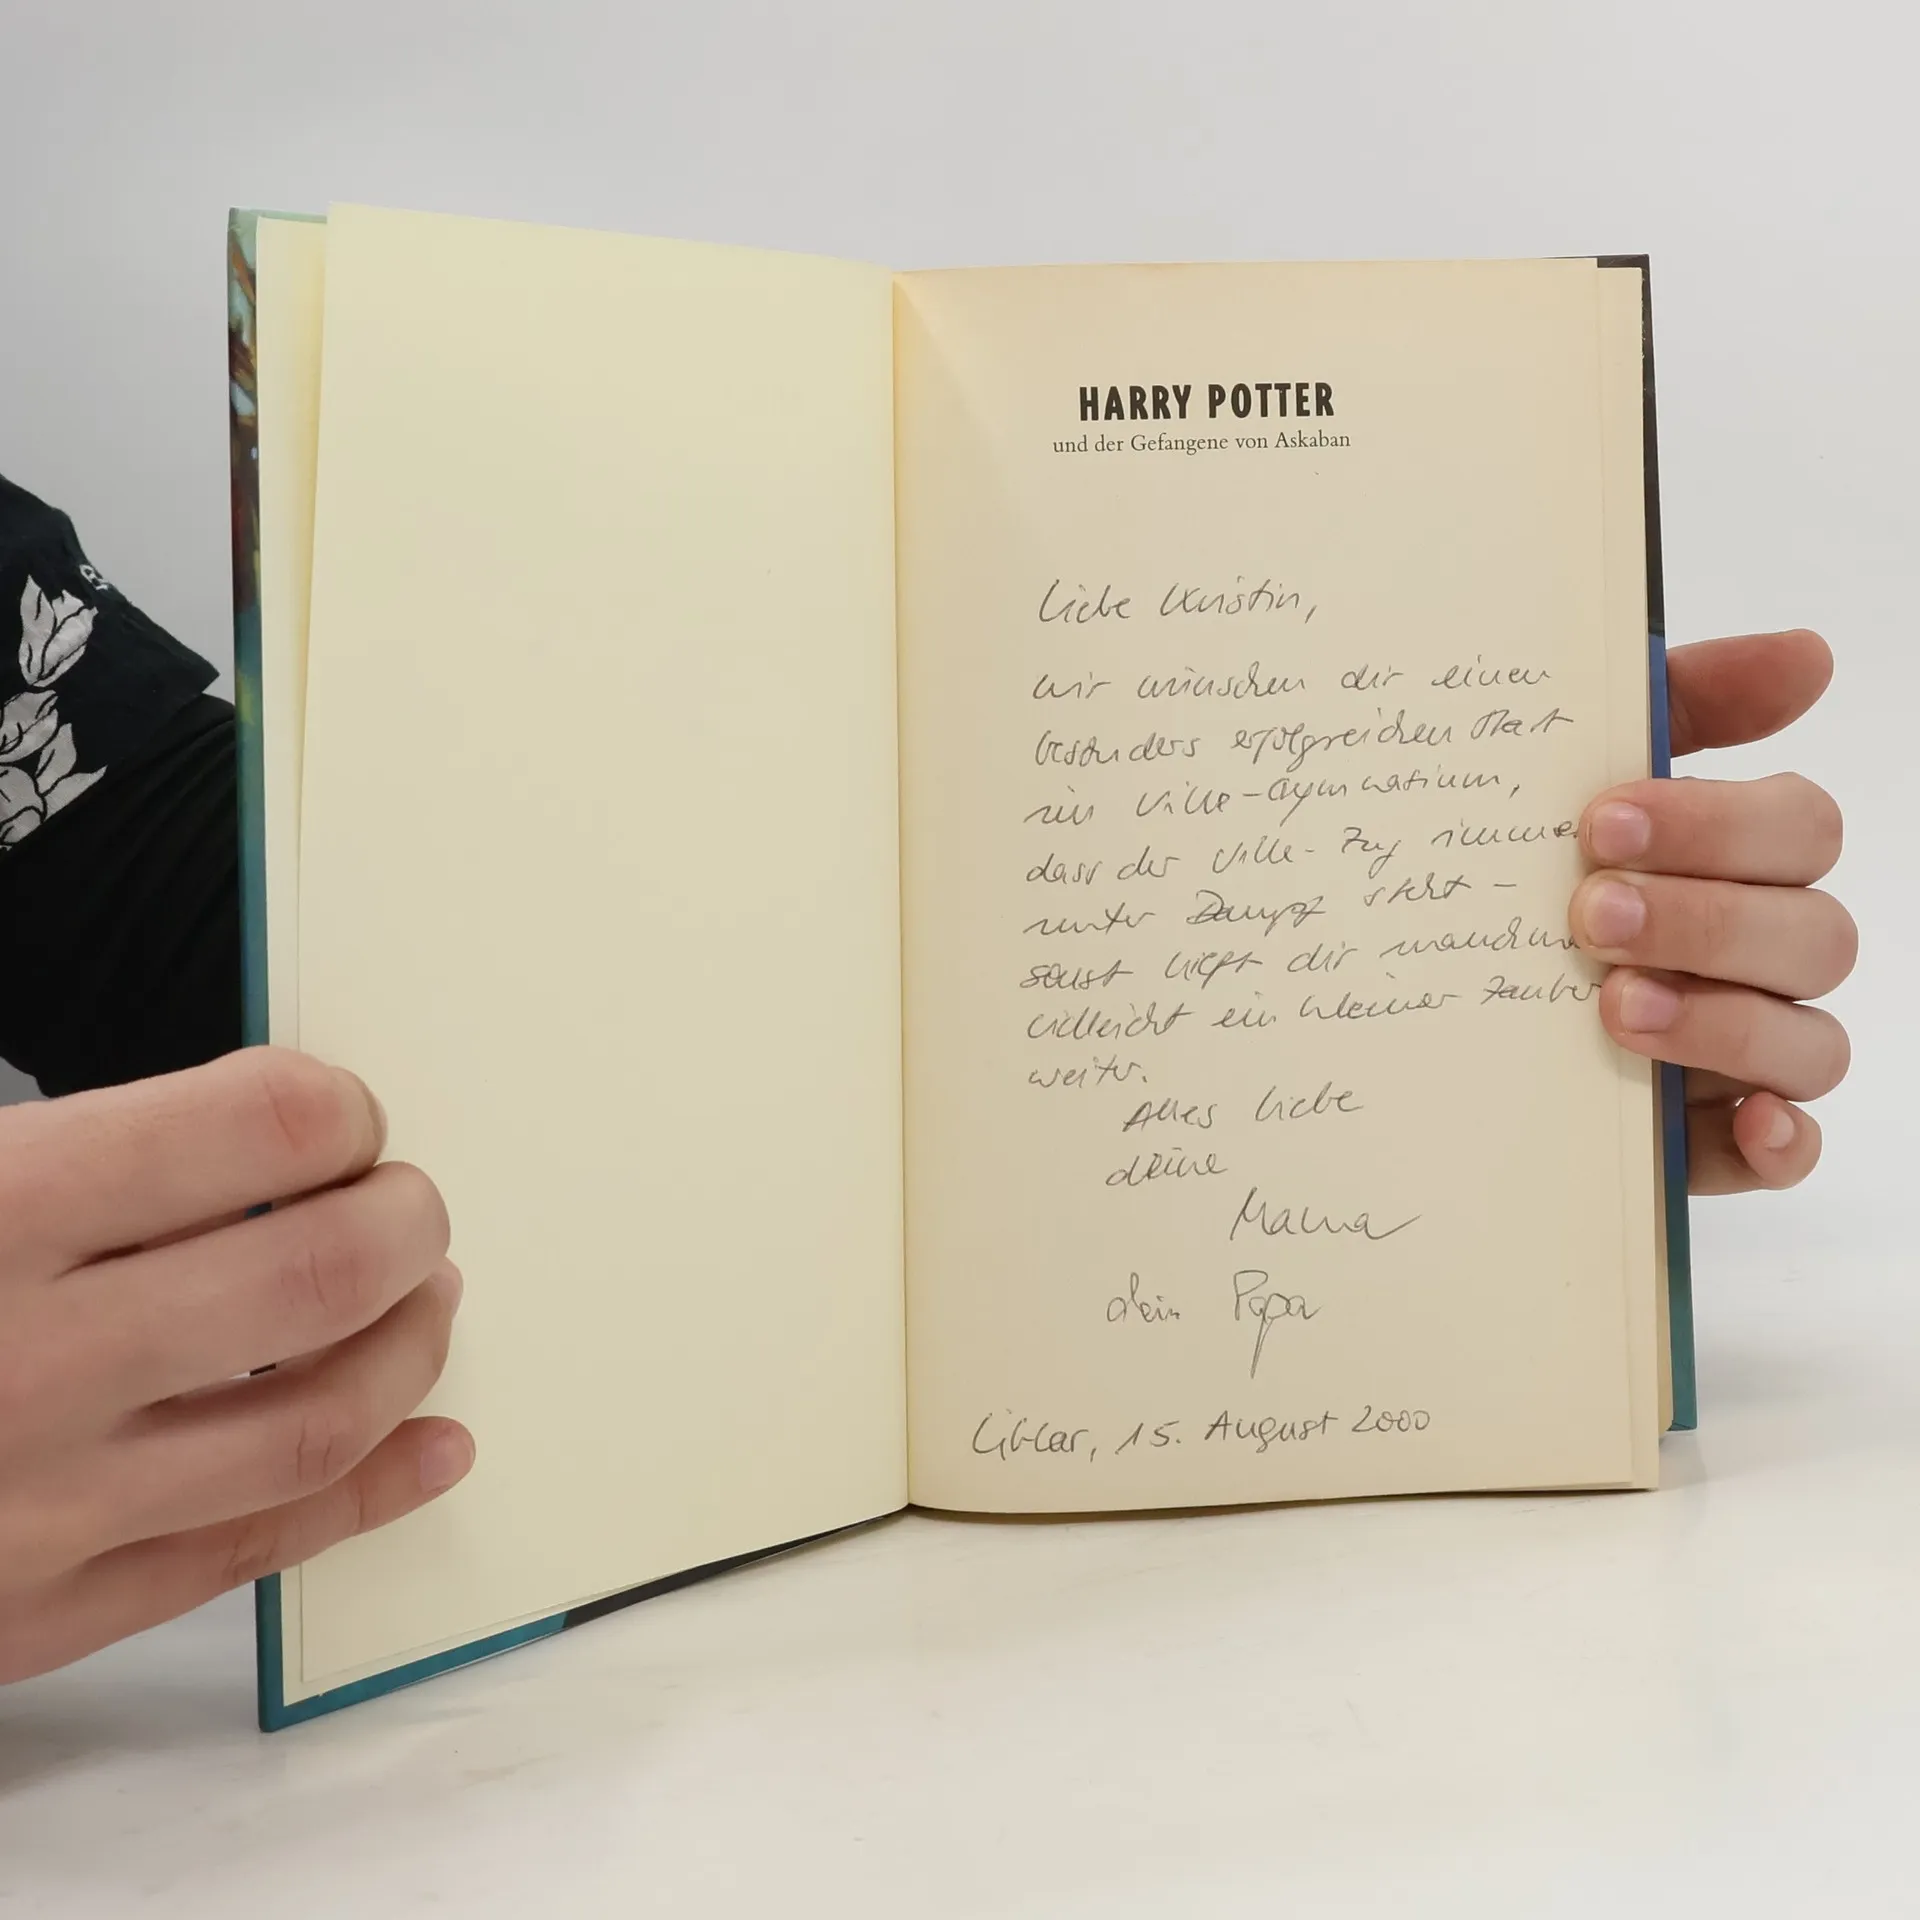 HARRY POTTER
und der Gefangene von Askaban
Liebe Kristin,
wir wünschen dir einen
besonders erfolgreichen Start
im Ville-Gymnasium,
dass der Ville-Zug immer
unter Dampf steht -
sonst hilft dir manchma
vielleicht ein kleiner Zauber
weiter.
Alles Liebe
deine
Mama
dein Papa
Liblar, 15. August 2000